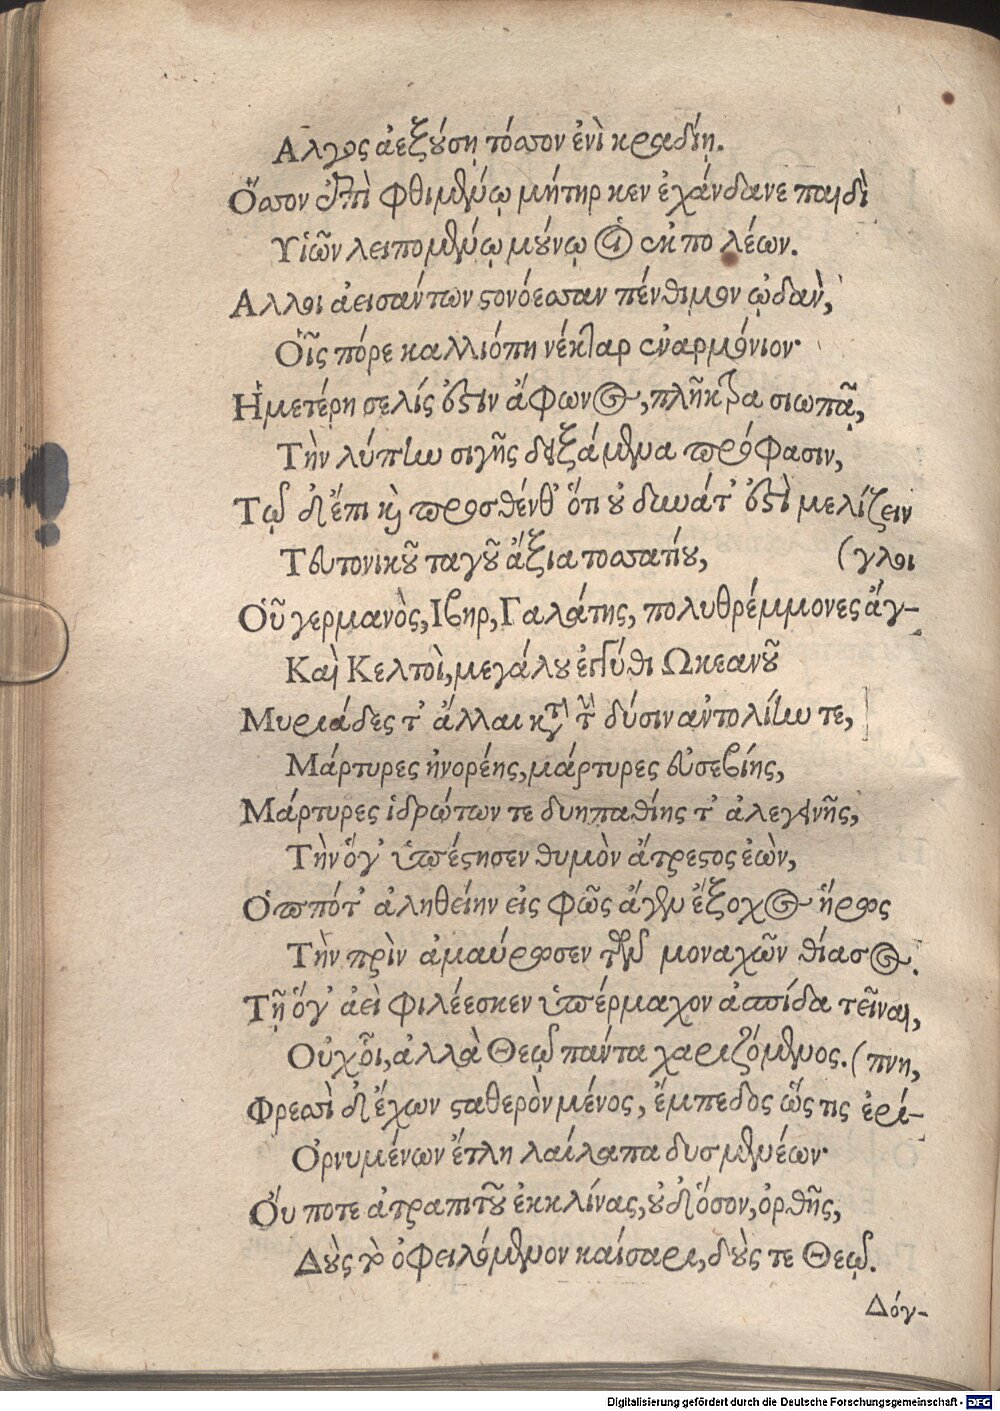 Αλγος ἀεξούσῃ τόσσον ἐνὶ κραδίῃ.
Ὅσσον ἐπὶ φθιμένῳ μήτηρ κεν ἐχάνδανε παιδὶ
Υἱῶν λειπομένῳ μούνῳ ἐκ πολέων.
Αλλοι ἀεισάντων στονόεσσαν πένθιμον ᾠδὰν,
Οἷς πόρε καλλιόπη νέκταρ ἐναρμόνιον·
Ἡμετέρη σελίς ἐστιν ἄφωνος, πλῆκτρα σιωπᾷ,
Τὴν λύπην σιγῆς δειξάμενα πρόφασιν,
Τῷ δ' ἔπι καὶ προσθένθ' ὅτι οὐ δυνάτ' ἐστὶ μελίζειν
Τευτονικοῦ ταγοῦ ἄξια τοσσατίου,
Οὗ γερμανὸς, Ιβηρ, Γαλάτης, πολυθρέμμονες ἄγ-
(γλοι
Καὶ Κελτοὶ, μεγάλου ἐγγύθι Ωκεανοῦ
Μυριάδες τ' ἄλλαι κατὰ τὴν δύσιν ἀντολίην τε,
Μάρτυρες ἠνορέης, μάρτυρες εὐσεβίης,
Μάρτυρες ἱδρώτων τε δυηπαθίης τ' ἀλεγεινῆς,
Τὴν ὅγ' ὑπέστησεν θυμὸν ἄτρεστος ἐὼν,
Ὁππότ' ἀληθείην εἰς φῶς ἄγεν ἔξοχος ἥρωος
Τὴν πρὶν ἀμαύρωσεν τῶν μοναχῶν θίασος.
Τῇ ὅγ' ἀεὶ φιλέεσκεν ὑπέρμαχον ἀσπίδα τεῖναι,
Οὐχ οἷ, ἀλλὰ Θεῷ πάντα χαριζόμενος.
Φρεσσὶ δ' ἔχων σταθερὸν μένος, ἔμπεδος ὥς τις ἐρί-
(πνη,
Ὀρνυμένων ἔτλη λαίλαπα δυσμενέων·
Οὔ ποτε ἀτραπιτοῦ ἐκκλίνας, οὐδ' ὅσον, ὀρθῆς,
Δοὺς γὰρ ὀφειλόμενον καίσαρι, δούς τε Θεῷ.
Δόγ-
Digitalisierung gefördert durch die Deutsche Forschungsgemeinschaft - DFG